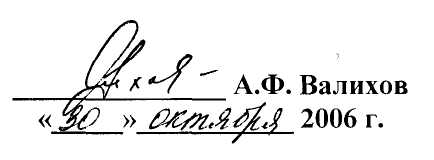 А.Ф. Валихов
«30» октября 2006 г.